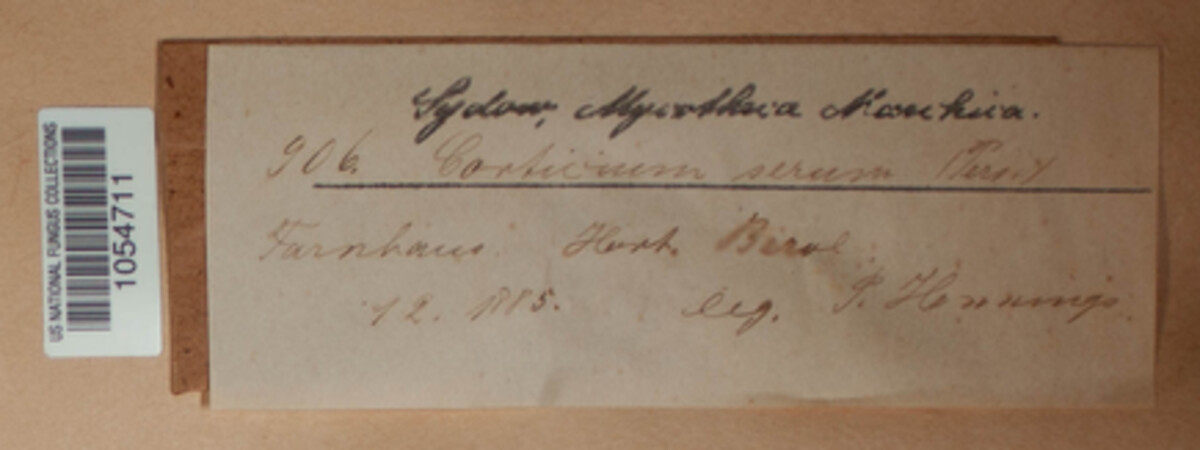 US NATIONAL FUNGUS COLLECTIONS
1054711
Sydow, Mycotheca Marchica.
906. Corticium serum (Pers.)
Farnhaus. Hort. Berol
12. 1885. leg. P. Hennings.